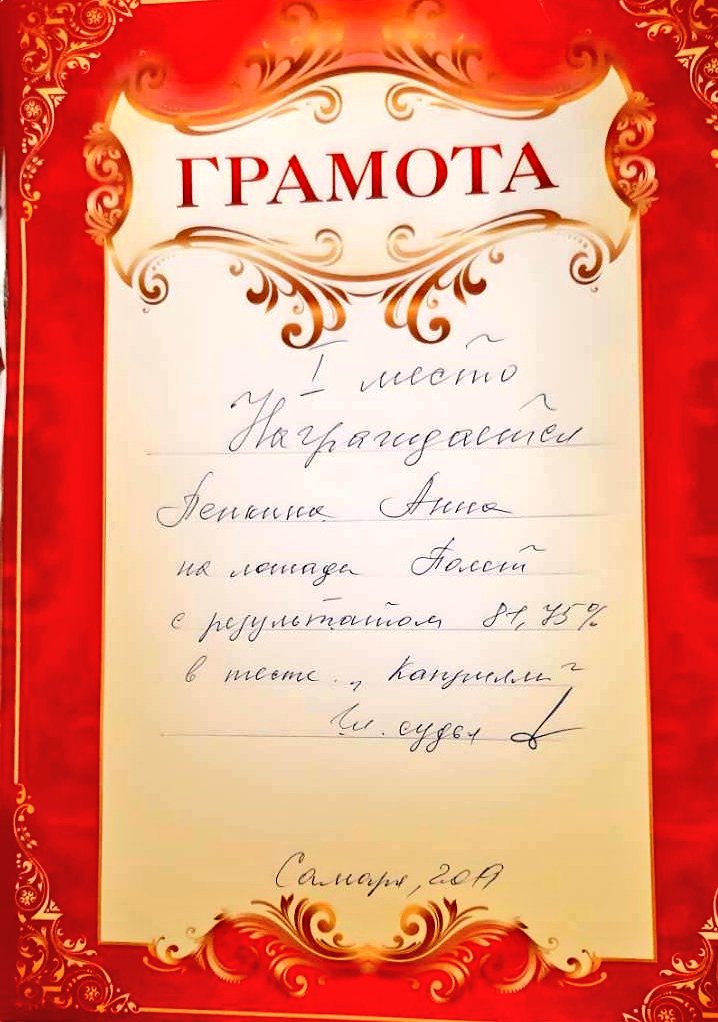 ГРАМОТА
I место
Награждается
Пенкина Анна
на лошади Полёт
с результатом 81,75%
в тесте „Каприлли"
Гл. судья
Самара, 2017